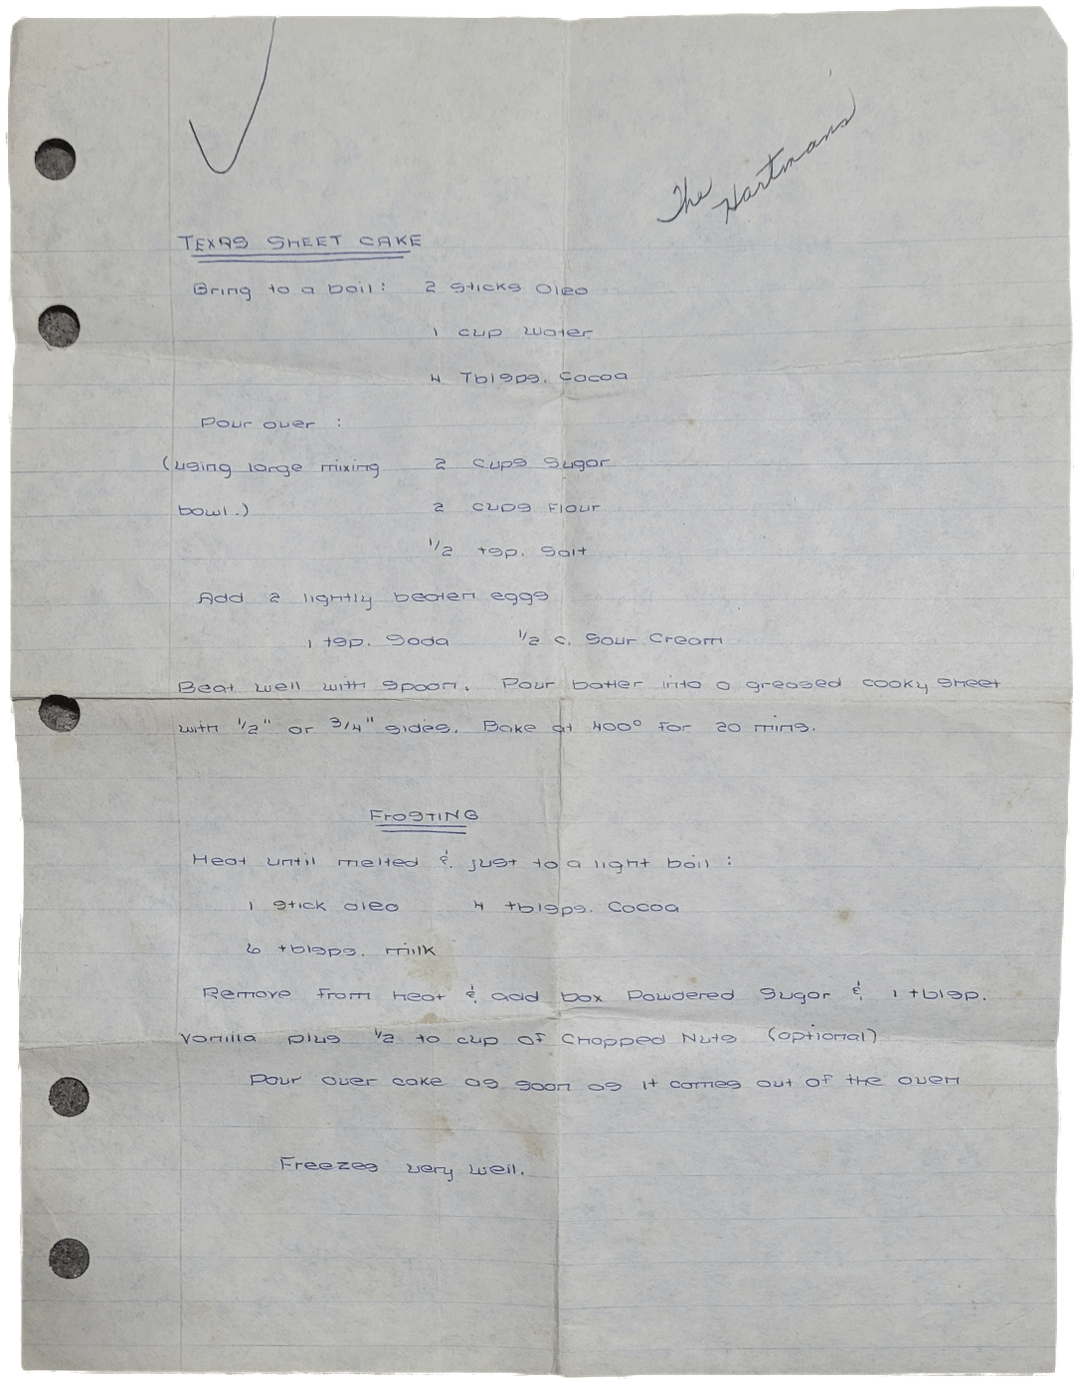 The Hartmans
TEXAS SHEET CAKE
Bring to a boil: 2 sticks Oleo
1 cup Water
4 Tblsps. Cocoa
Pour over :
(using large mixing 2 cups Sugar
bowl.) 2 cups Flour
1/2 tsp. Salt
Add 2 lightly beaten eggs
1 tsp. Soda 1/2 c. Sour Cream
Beat well with spoon. Pour batter into a greased cooky sheet
with 1/2" or 3/4" sides. Bake at 400° for 20 mins.
FROSTING
Heat until melted & just to a light boil :
1 stick oleo 4 tblsps. Cocoa
6 tblsps. milk
Remove from heat & add box Powdered Sugar & 1 tblsp.
Vanilla plus 1/2 to cup of Chopped Nuts (optional)
Pour over cake as soon as it comes out of the oven
Freezes very well.